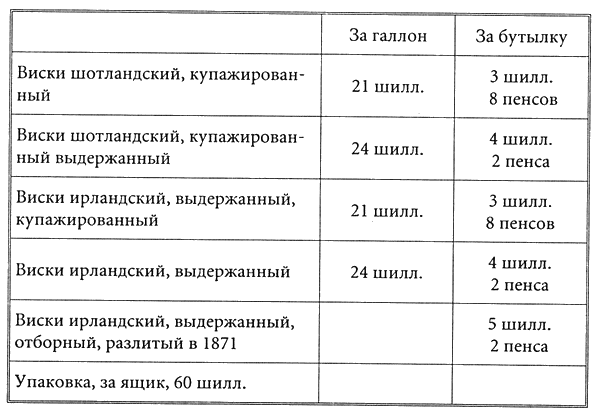 За галлон За бутылку
Виски шотландский, купажирован-
ный
21 шилл.
3 шилл.
8 пенсов
Виски шотландский, купажирован-
ный выдержанный
24 шилл.
4 шилл.
2 пенса
Виски ирландский, выдержанный,
купажированный
21 шилл.
3 шилл.
8 пенсов
Виски ирландский, выдержанный
24 шилл.
4 шилл.
2 пенса
Виски ирландский, выдержанный,
отборный, разлитый в 1871
5 шилл.
2 пенса
Упаковка, за ящик, 60 шилл.